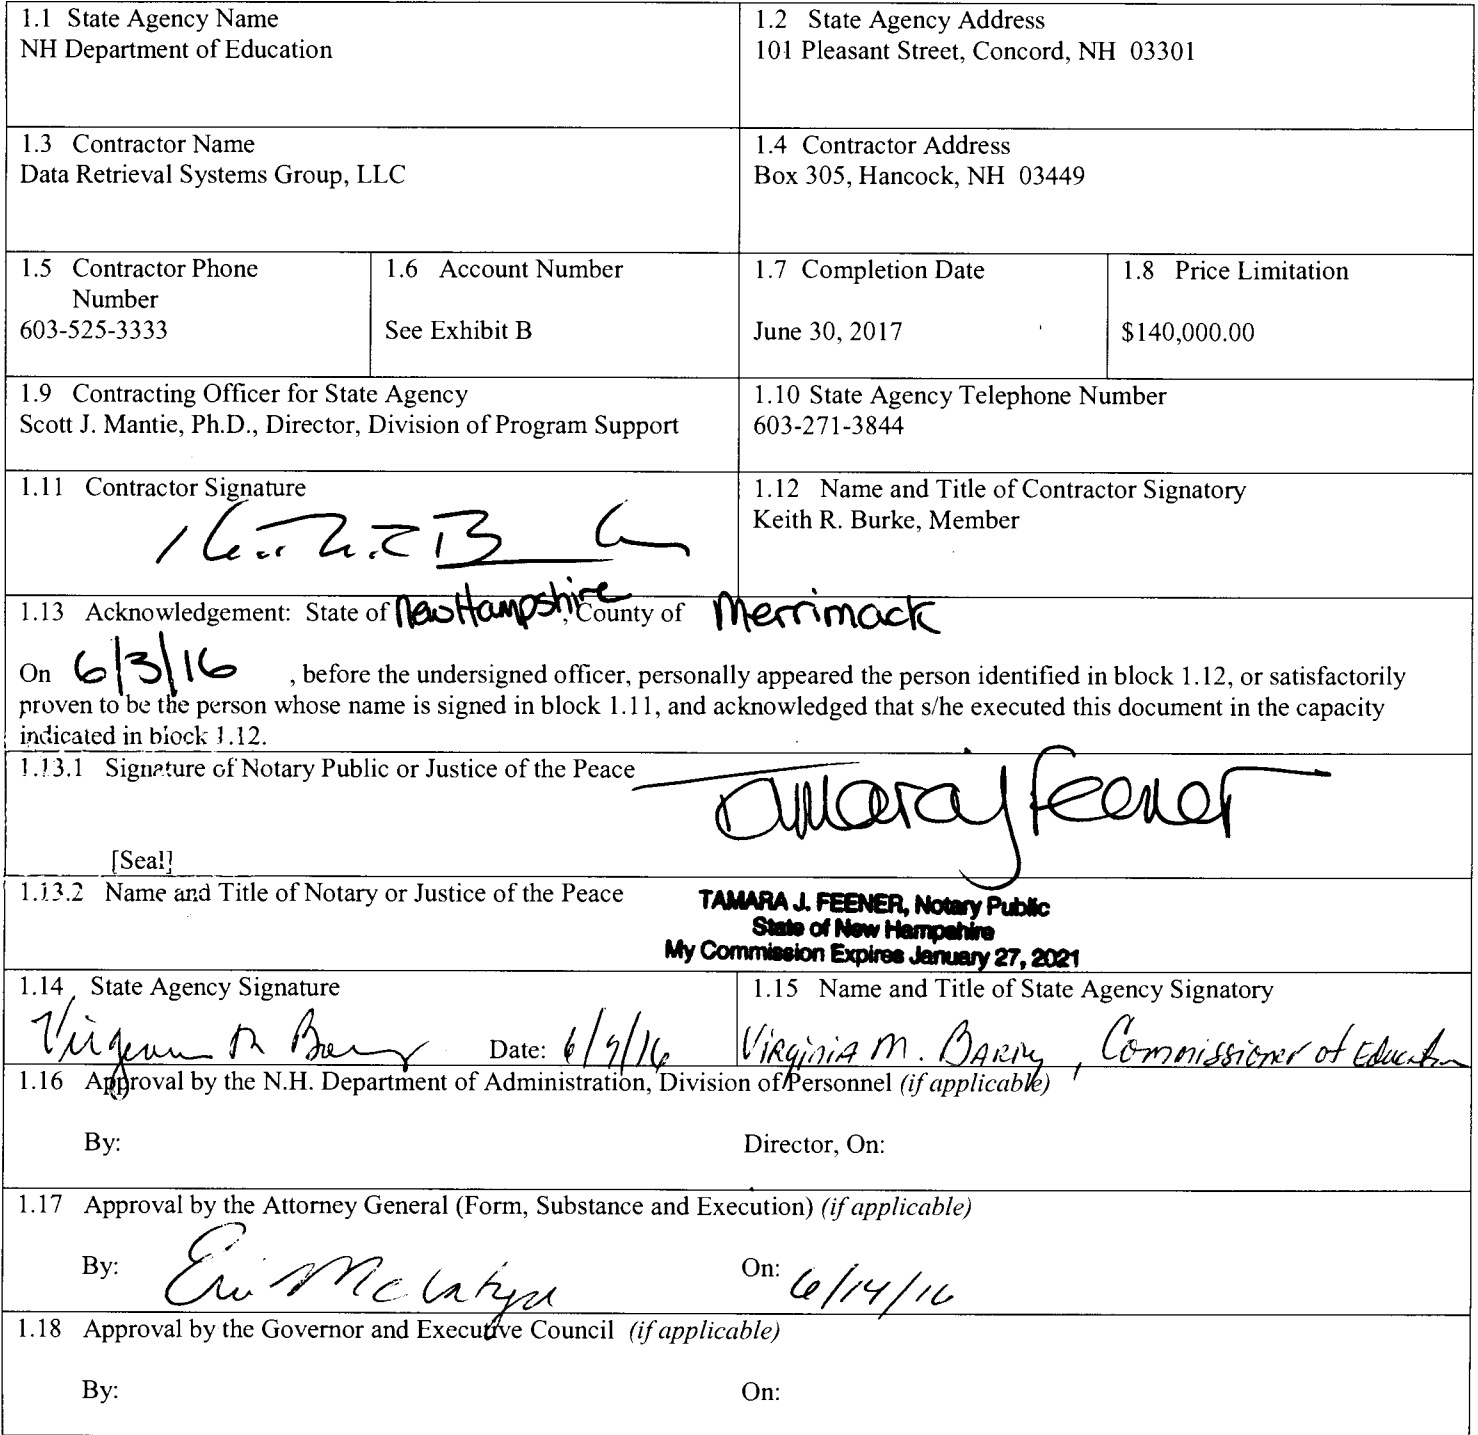 1.1 State Agency Name
NH Department of Education
1.2 State Agency Address
101 Pleasant Street, Concord, NH 03301
1.3 Contractor Name
Data Retrieval Systems Group, LLC
1.4 Contractor Address
Box 305, Hancock, NH 03449
1.5 Contractor Phone
Number
603-525-3333
1.6 Account Number
See Exhibit B
1.7 Completion Date
June 30, 2017
1.8 Price Limitation
$140,000.00
1.9 Contracting Officer for State Agency
Scott J. Mantie, Ph.D., Director, Division of Program Support
1.10 State Agency Telephone Number
603-271-3844
1.11 Contractor Signature
1.12 Name and Title of Contractor Signatory
Keith R. Burke, Member
1.13 Acknowledgement: State of New Hampshire, County of Merrimack
On 6/3/16 , before the undersigned officer, personally appeared the person identified in block 1.12, or satisfactorily
proven to be the person whose name is signed in block 1.11, and acknowledged that s/he executed this document in the capacity
indicated in block 1.12.
1.13.1 Signature of Notary Public or Justice of the Peace
Tamara J Feener
[Seal]
1.13.2 Name and Title of Notary or Justice of the Peace
TAMARA J. FEENER, Notary Public
State of New Hampshire
My Commission Expires January 27, 2021
1.14 State Agency Signature
Date: 6/9/16
1.15 Name and Title of State Agency Signatory
Virginia M. Barry, Commissioner of Education
1.16 Approval by the N.H. Department of Administration, Division of Personnel (if applicable)
By:
Director, On:
1.17 Approval by the Attorney General (Form, Substance and Execution) (if applicable)
By:
On: 6/14/16
1.18 Approval by the Governor and Executive Council (if applicable)
By:
On: